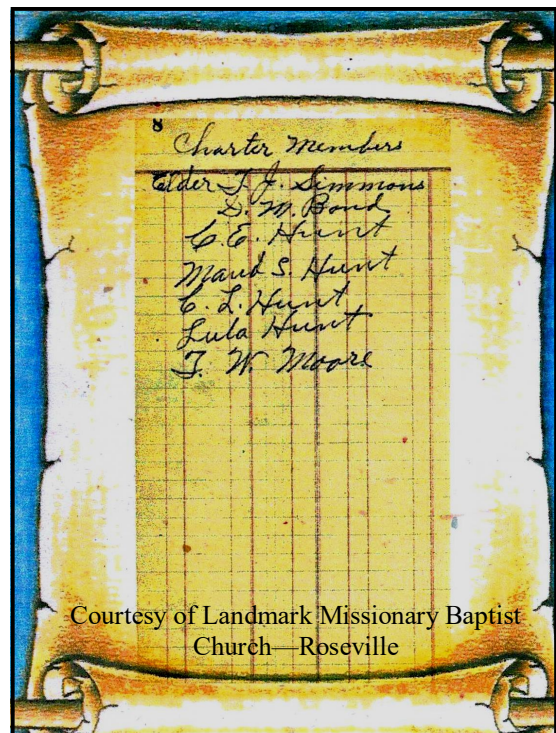 8
Charter Members
Elder T. J. Simmons
D. M. Bond
C. E. Hunt
Maud S. Hunt
C. L. Hunt
Lula Hunt
T. W. Moore
Courtesy of Landmark Missionary Baptist
Church—Roseville